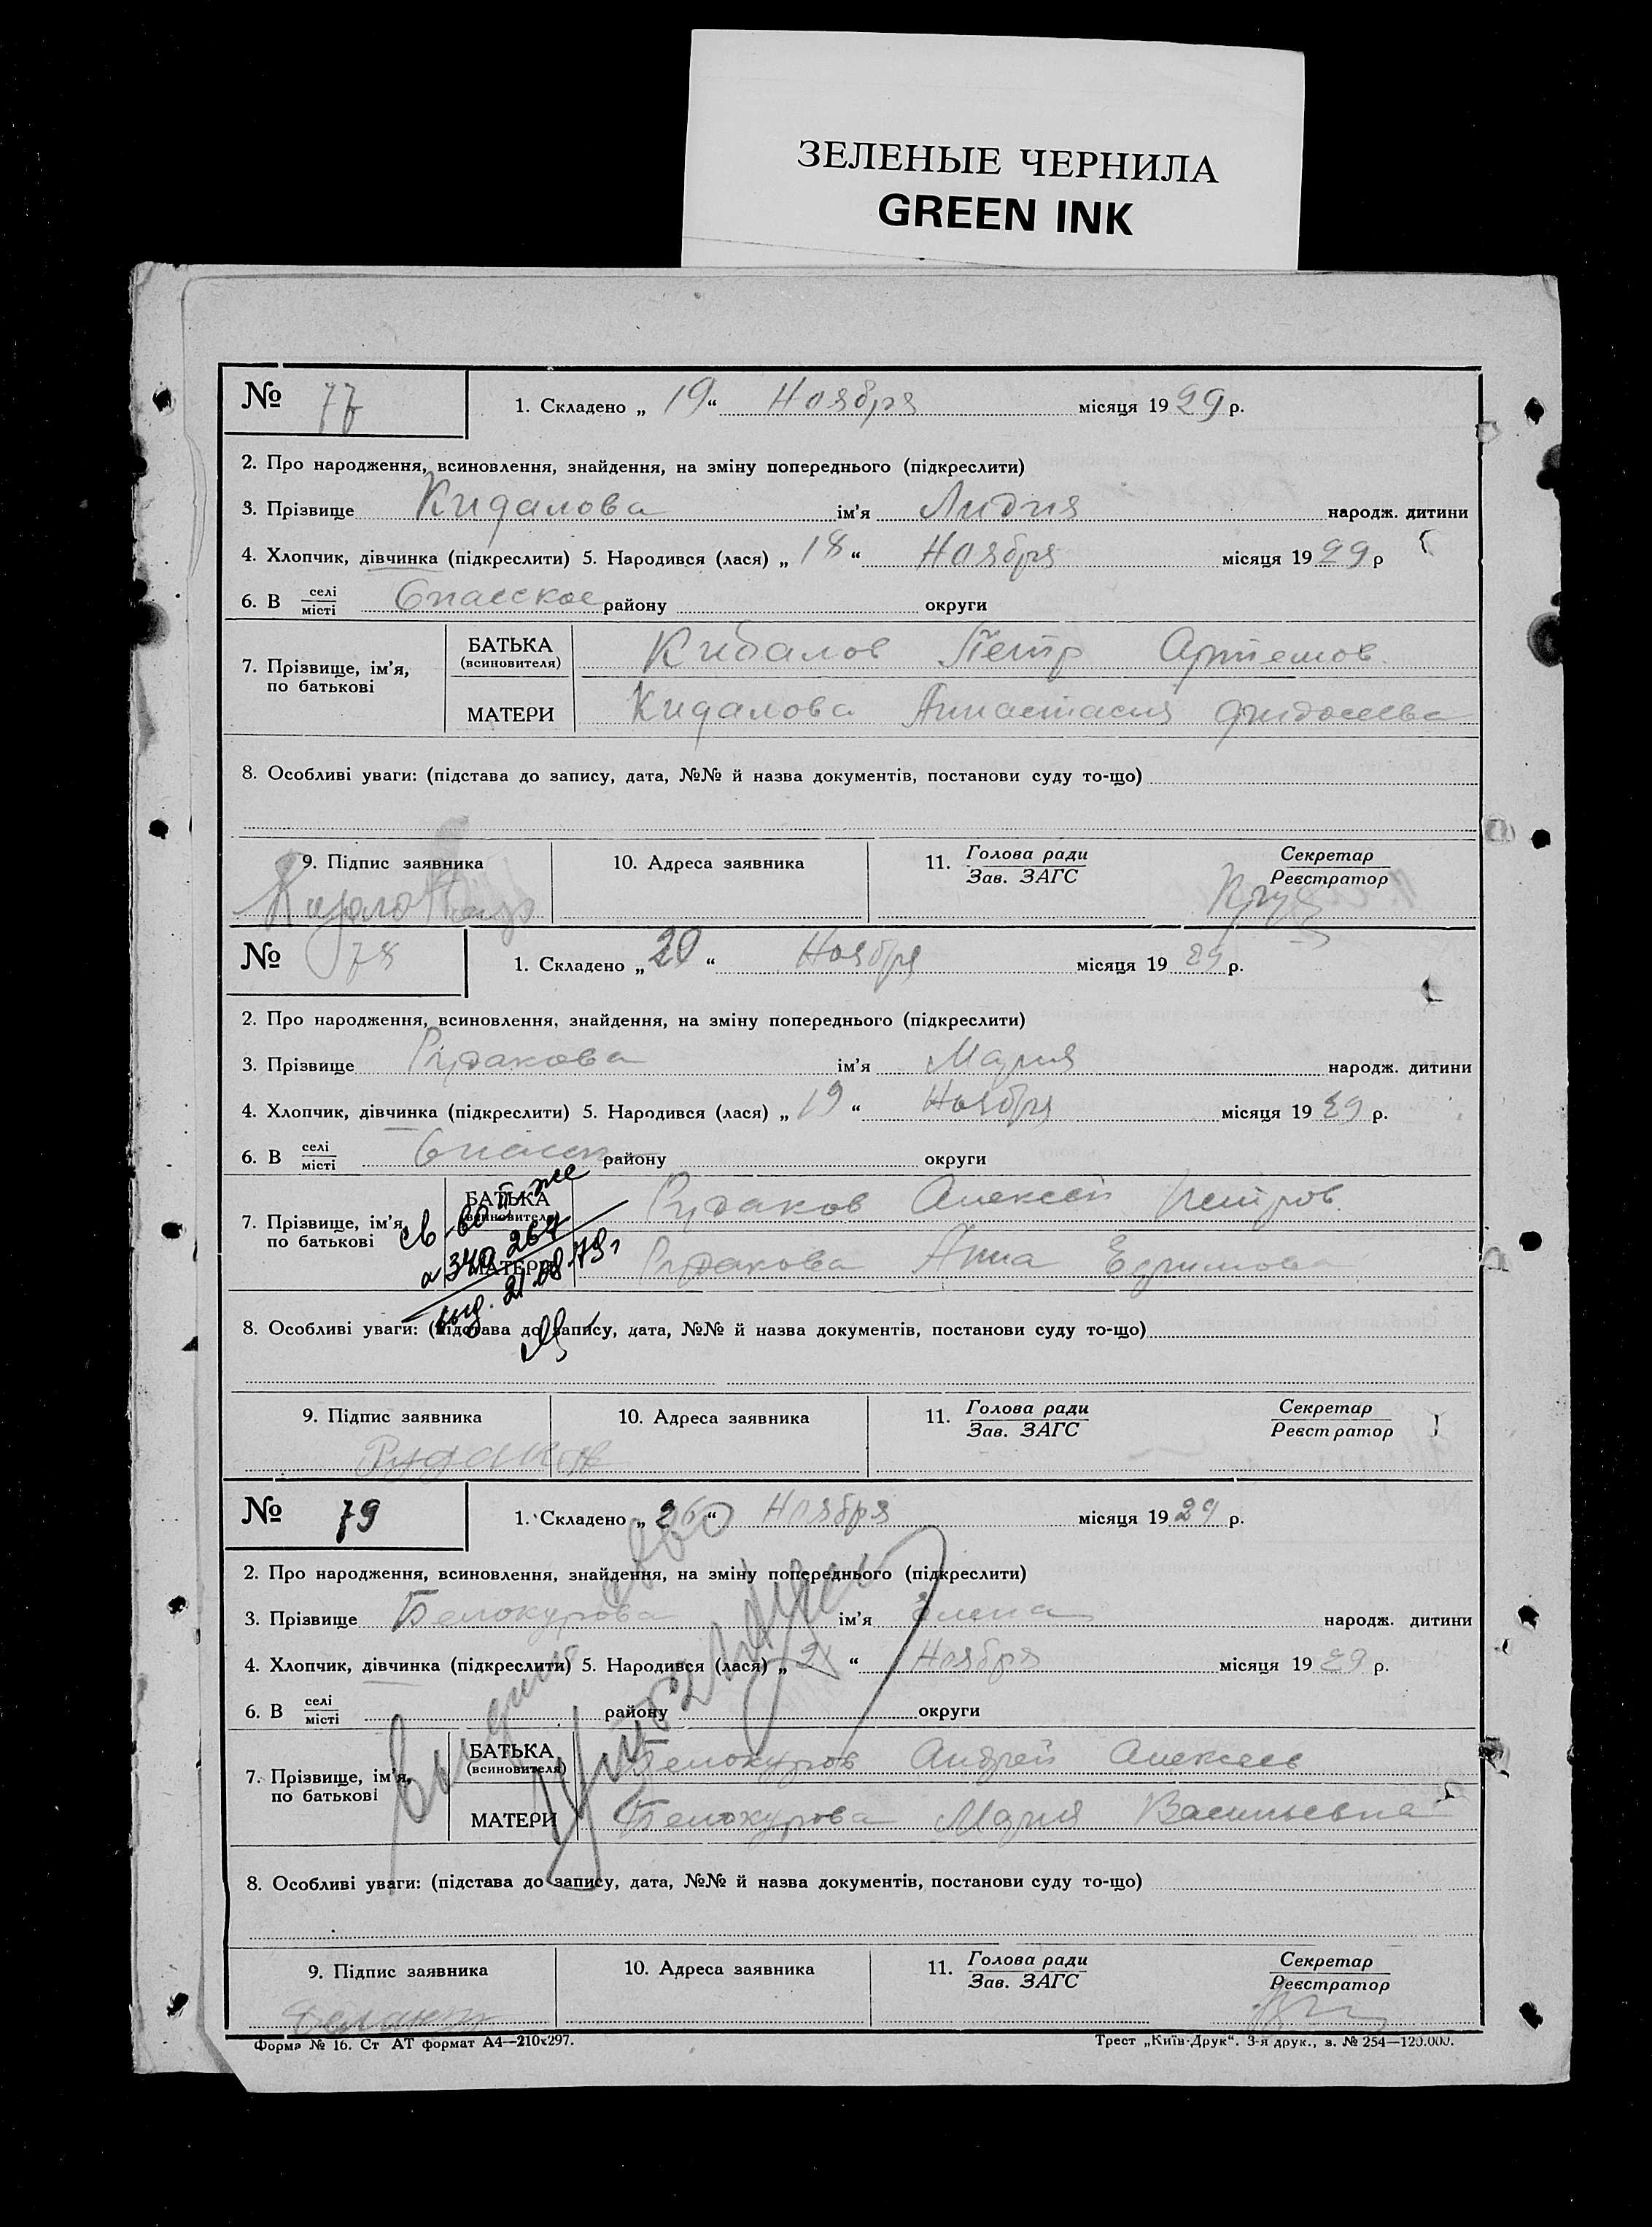 ЗЕЛЕНЫЕ ЧЕРНИЛА
GREEN INK
№ 77
1. Складено „ 19 “ Ноября місяця 1929 р.
2. Про народження, всиновлення, знайдення, на зміну попереднього (підкреслити)
3. Прізвище Кидалова ім'я Лидия народж. дитини
4. Хлопчик, дівчинка (підкреслити) 5. Народився (лася) „ 18 “ Ноября місяця 1929 р
6. В селі/місті Спасское району округи
7. Прізвище, ім'я, по батькові
БАТЬКА (всиновителя) Кидалов Петр Артемов
МАТЕРИ Кидалова
8. Особливі уваги: (підстава до запису, дата, №№ й назва документів, постанови суду то-що)
9. Підпис заявника 10. Адреса заявника 11. Голова ради/Зав. ЗАГС Секретар/Реєстратор
№ 78
1. Складено „ 20 “ Ноября місяця 1929 р.
2. Про народження, всиновлення, знайдення, на зміну попереднього (підкреслити)
3. Прізвище Рудакова ім'я Мария народж. дитини
4. Хлопчик, дівчинка (підкреслити) 5. Народився (лася) „ 19 “ Ноября місяця 1929 р.
6. В селі/місті району округи
7. Прізвище, ім'я, по батькові
БАТЬКА (всиновителя) Рудаков Алексей Петров
МАТЕРИ Рудакова Анна Ефимова
8. Особливі уваги: (підстава до запису, дата, №№ й назва документів, постанови суду то-що)
9. Підпис заявника 10. Адреса заявника 11. Голова ради/Зав. ЗАГС Секретар/Реєстратор
№ 79
1. Складено „ 26 “ Ноября місяця 1929 р.
2. Про народження, всиновлення, знайдення, на зміну попереднього (підкреслити)
3. Прізвище Белокурова ім'я Елена народж. дитини
4. Хлопчик, дівчинка (підкреслити) 5. Народився (лася) „ “ Ноября місяця 1929 р.
6. В селі/місті району округи
7. Прізвище, ім'я, по батькові
БАТЬКА (всиновителя) Белокуров Андрей Алексеев
МАТЕРИ Белокурова Мария Васильевна
8. Особливі уваги: (підстава до запису, дата, №№ й назва документів, постанови суду то-що)
9. Підпис заявника 10. Адреса заявника 11. Голова ради/Зав. ЗАГС Секретар/Реєстратор
Форма № 16. Ст АТ формат А4—210х297. Трест „Київ-Друк“. 3-я друк., з. № 254—120.000.